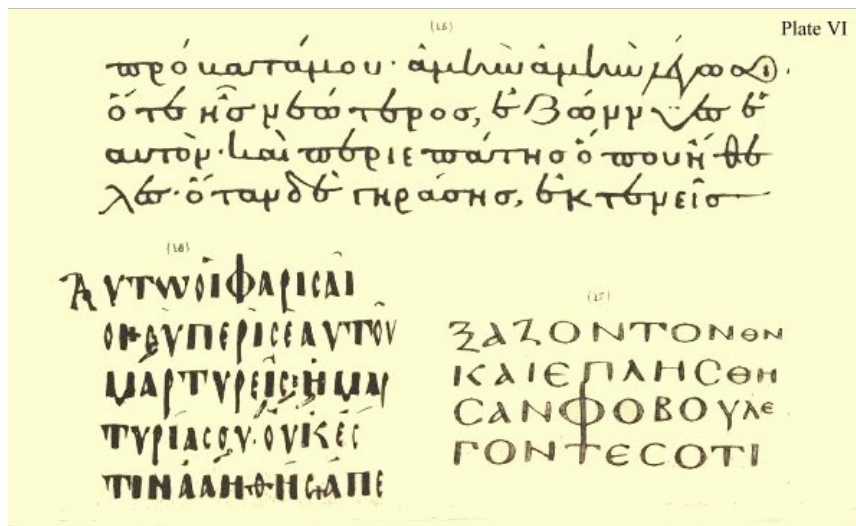 Plate VI
(15)
πρόβατάμου· ἀμὴν ἀμὴν λέγω σοι.
ὅτε ἦσ νεώτεροσ, ἐζώννυεσ ἑ
αυτὸν· καὶ περιεπάτησ ὅπου ἤθε
λεσ· ὅταν δὲ γηράσησ, ἐκτενεῖσ
(16)
ΑΥΤΩΟἱΦΑΡΙCΑΙ
ΟΙ·CὺΠΕΡὶCΕΑΥΤΟῦ
ΜΑΡΤΥΡΕῖC·ἡΜΑΡ
ΤΥΡίΑCΟΥ·ΟΥΚέC
ΤΙΝἀΛΗΘὴC·ἀΠΕ
(17)
ΞΑΖΟΝΤΟΝΘΝ
ΚΑΙΕΠΛΗCΘΗ
CΑΝΦΟΒΟΥΛΕ
ΓΟΝΤΕCΟΤΙ